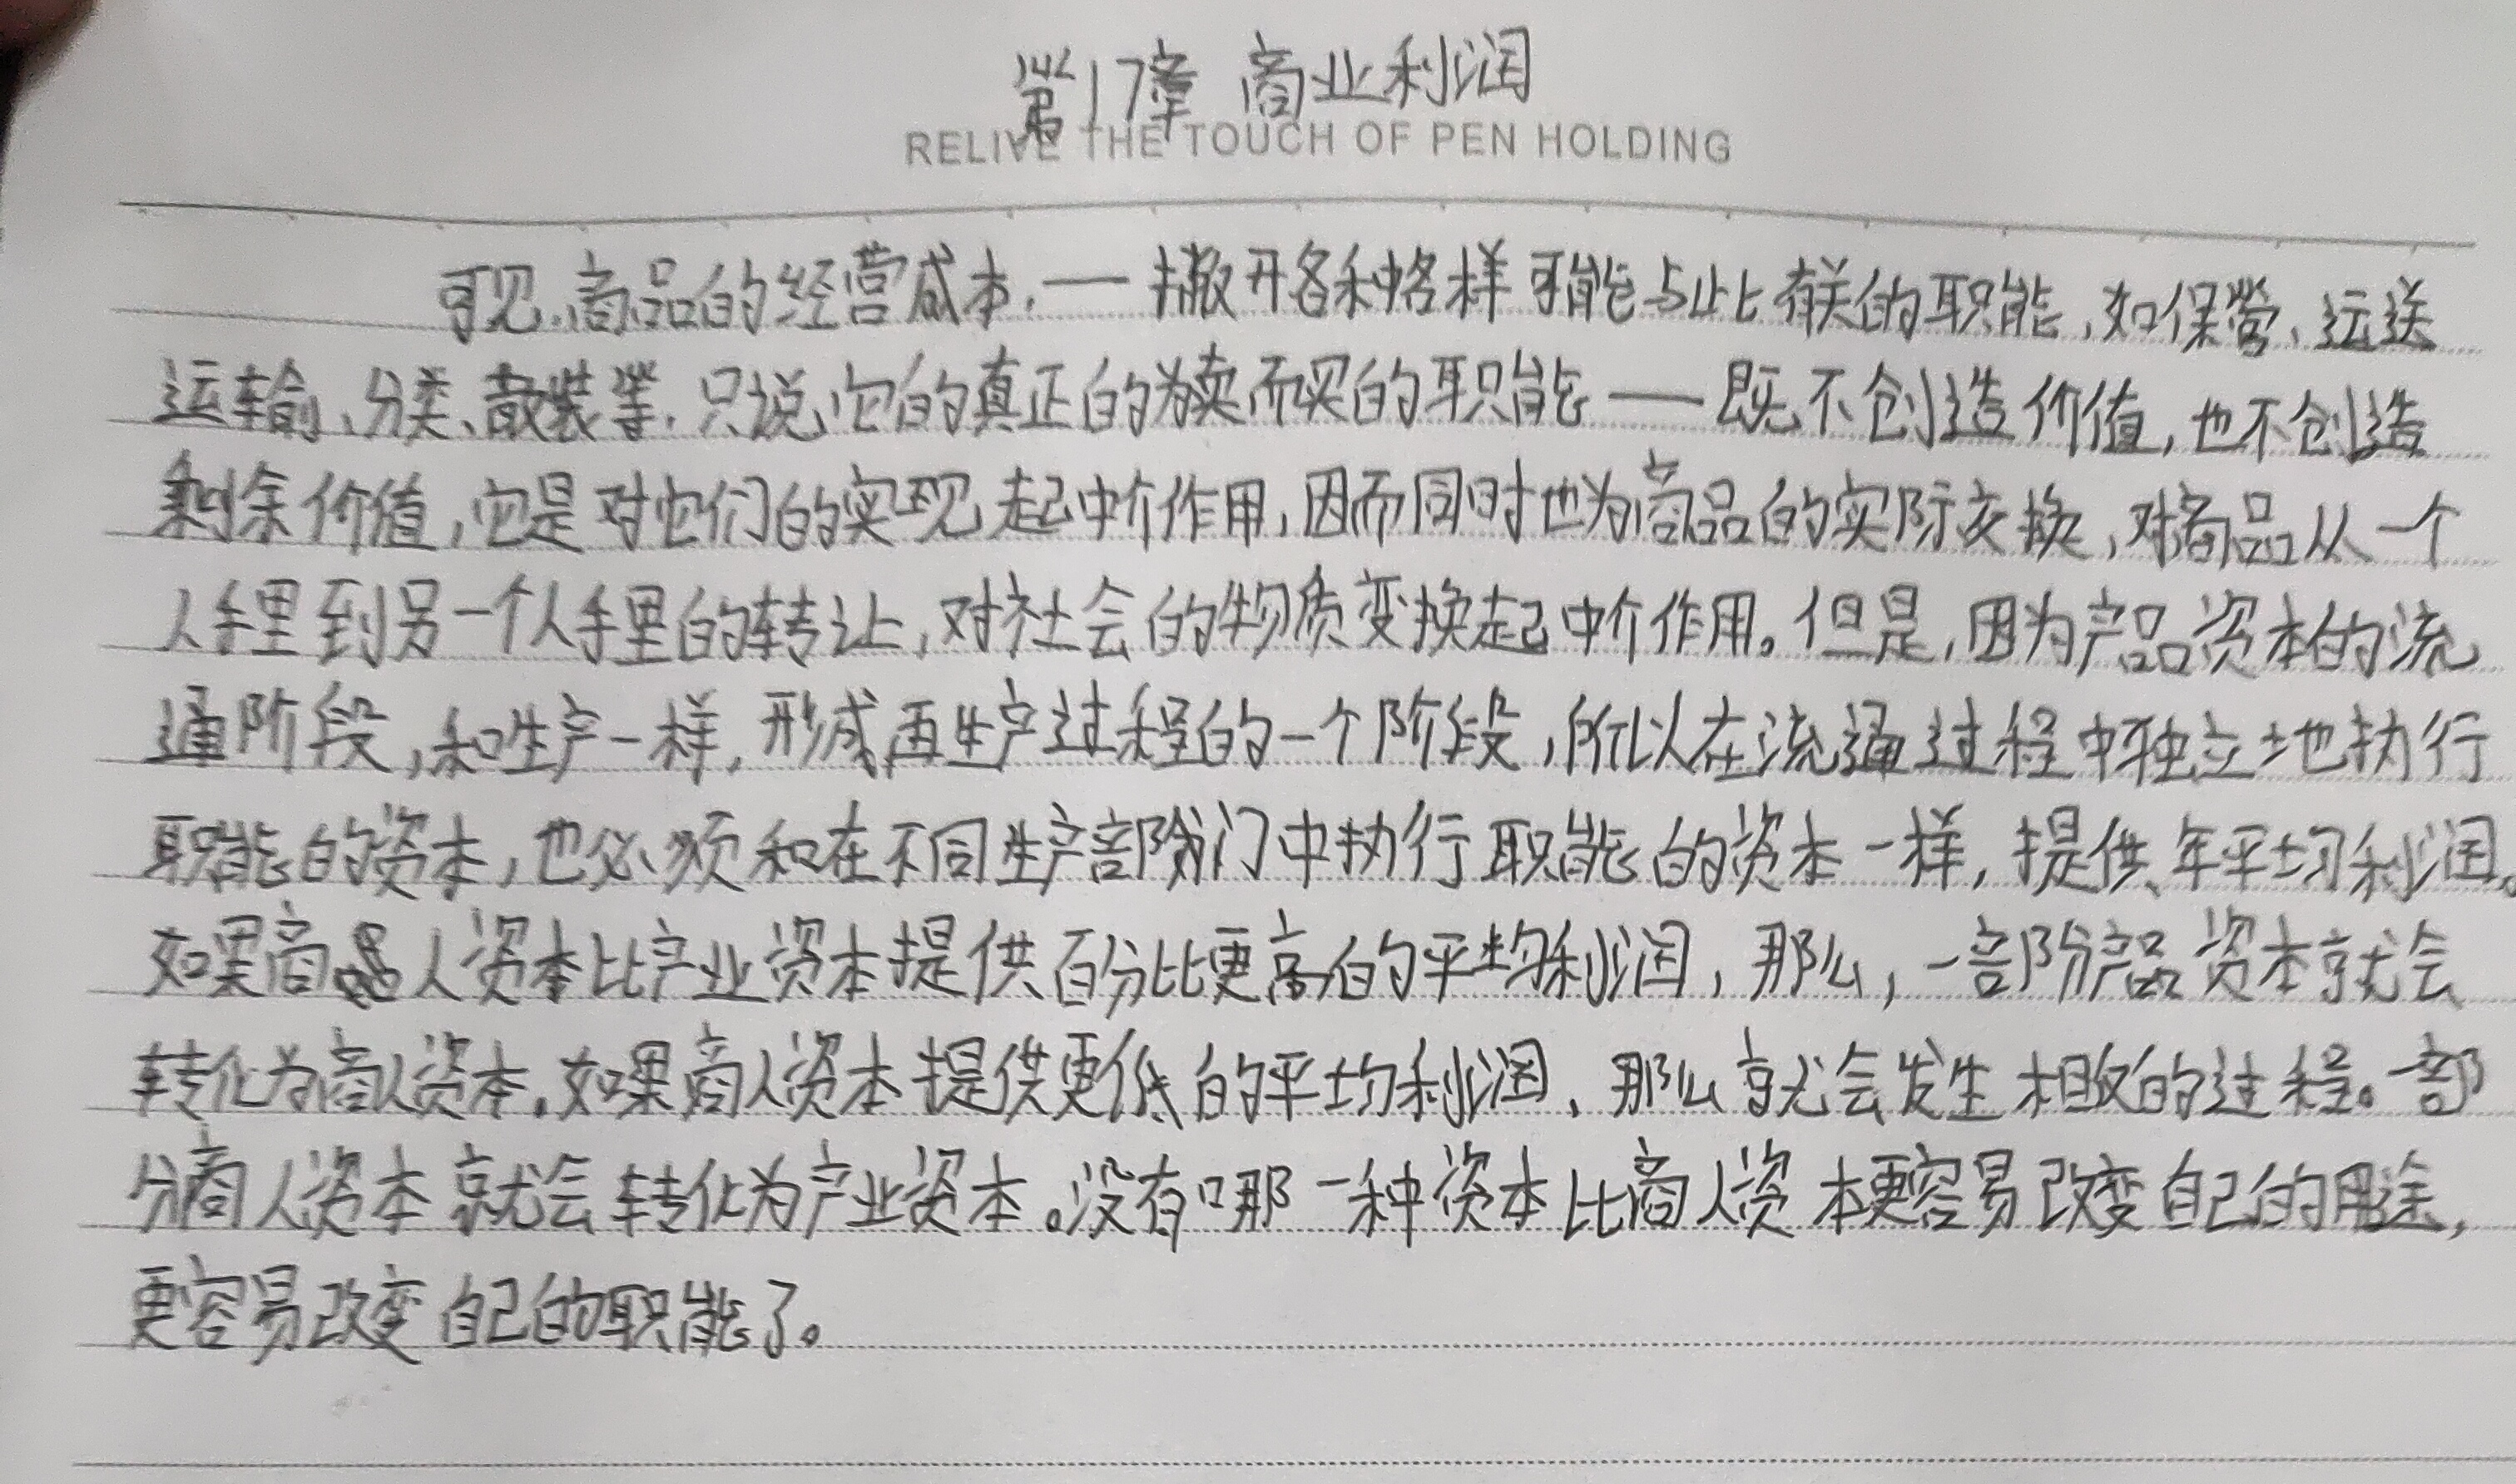 第17章 商业利润
RELIVE THE TOUCH OF PEN HOLDING
可见,商品的经营成本,——撇开各种各样可能与此有关的职能,如保管、运送
运输、分类、散装等,只说它的真正的为卖而买的职能——既不创造价值,也不创造
剩余价值,它是对它们的实现起中介作用,因而同时也为商品的实际交换,对商品从一个
人手里到另一个人手里的转让,对社会的物质变换起中介作用。但是,因为产品资本的流
通阶段,和生产一样,形成再生产过程的一个阶段,所以在流通过程中独立地执行
职能的资本,也必须和在不同生产部门中执行职能的资本一样,提供年平均利润。
如果商人资本比产业资本提供百分比更高的平均利润,那么,一部分产品资本就会
转化为商人资本。如果商人资本提供更低的平均利润,那么就会发生相反的过程。一部
分商人资本就会转化为产业资本。没有哪一种资本比商人资本更容易改变自己的用途,
更容易改变自己的职能了。